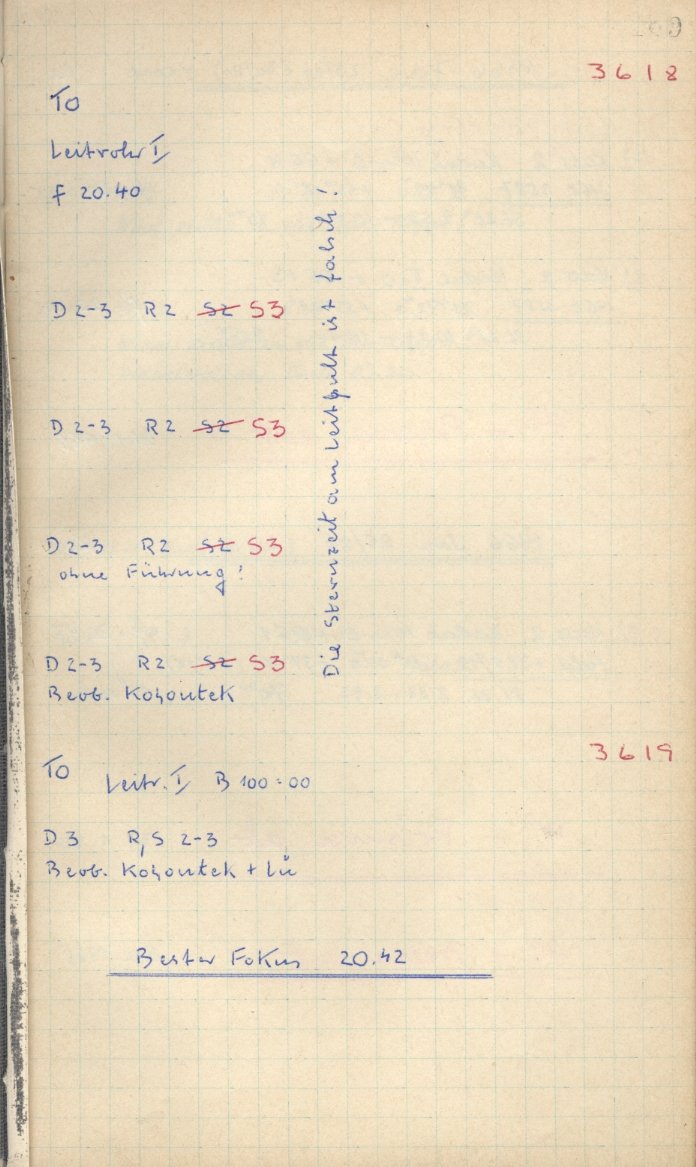 3618
TO
Leitrohr I
f 20.40
D 2-3 R 2 S2 S3
D 2-3 R 2 S2 S3
D 2-3 R 2 S2 S3
ohne Führung!
D 2-3 R 2 S2 S3
Beob. Kohoutek
Die Sternzeit am Leitpult ist falsch!
3619
TO Leitr. I B 100:00
D 3 R, S 2-3
Beob. Kohoutek + Lü
Bester Fokus 20.42